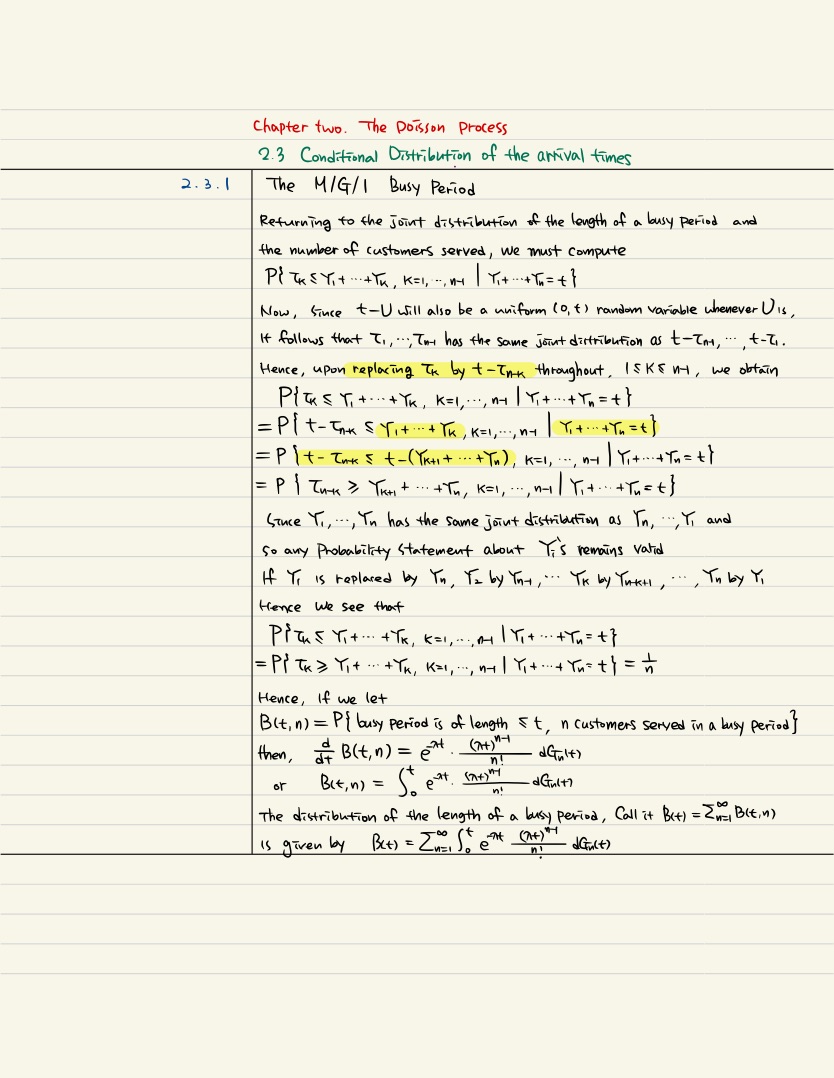 Chapter two. The Poisson Process
2.3 Conditional Distribution of the arrival times
2.3.1 The M/G/1 Busy Period
Returning to the joint distribution of the length of a busy period and
the number of customers served, we must compute
P{ τₖ ≤ Y₁+⋯+Yₖ, k=1,⋯,n-1 | Y₁+⋯+Yₙ=t}
Now, since t-U will also be a uniform (0,t) random variable whenever U is,
it follows that τ₁,⋯,τₙ₋₁ has the same joint distribution as t-τₙ₋₁,⋯, t-τ₁.
Hence, upon replacing τₖ by t-τₙ₋ₖ throughout, 1≤k≤n-1, we obtain
P{τₖ ≤ Y₁+⋯+Yₖ, k=1,⋯,n-1 | Y₁+⋯+Yₙ=t}
= P{ t-τₙ₋ₖ ≤ Y₁+⋯+Yₖ, k=1,⋯,n-1 | Y₁+⋯+Yₙ=t}
= P{ t-τₙ₋ₖ ≤ t-(Yₖ₊₁+⋯+Yₙ), k=1,⋯,n-1 | Y₁+⋯+Yₙ=t}
= P{ τₙ₋ₖ ≥ Yₖ₊₁+⋯+Yₙ, k=1,⋯,n-1 | Y₁+⋯+Yₙ=t}
Since Y₁,⋯,Yₙ has the same joint distribution as Yₙ,⋯,Y₁ and
so any Probability statement about Yᵢ's remains valid
If Y₁ is replaced by Yₙ, Y₂ by Yₙ₋₁,⋯ Yₖ by Yₙ₋ₖ₊₁,⋯, Yₙ by Y₁
Hence we see that
P{τₖ ≤ Y₁+⋯+Yₖ, k=1,⋯,n-1 | Y₁+⋯+Yₙ=t}
= P{ τₖ ≥ Y₁+⋯+Yₖ, k=1,⋯,n-1 | Y₁+⋯+Yₙ=t} = 1/n
Hence, if we let
B(t,n) = P{ busy period is of length ≤ t, n customers served in a busy period}
then, d/dt B(t,n) = e^(-λt) · (λt)^(n-1)/n! dGₙ(t)
or B(t,n) = ∫₀ᵗ e^(-λt) · (λt)^(n-1)/n! dGₙ(t)
The distribution of the length of a busy period, Call it B(t) = Σₙ₌₁^∞ B(t,n)
is given by B(t) = Σₙ₌₁^∞ ∫₀ᵗ e^(-λt) (λt)^(n-1)/n! dGₙ(t)